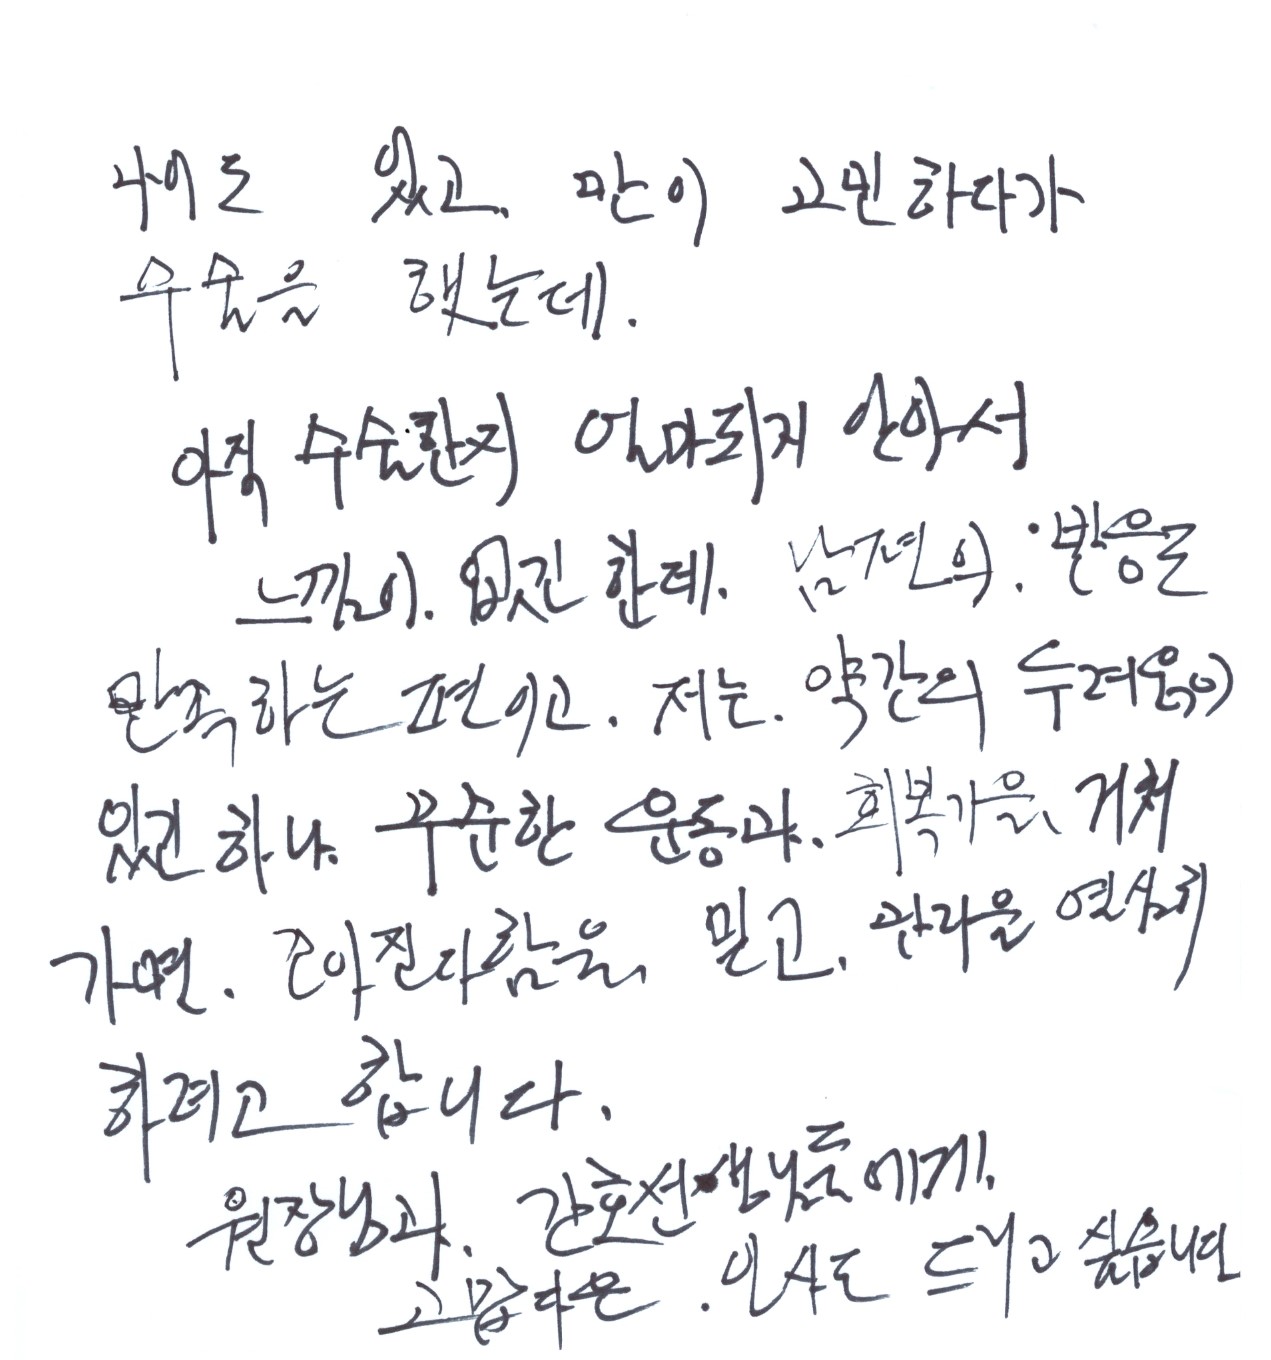 나이도 있고. 만이 고민하다가
수술을 했는데.
아직 수술한지 얼마되지 안아서
느낌이. 없긴 한데. 남편의. 반응은
만족하는 편이고. 저는. 약간의 두려움이
있긴 하나. 꾸준한 운동과. 회복기을 거쳐
가면. 조아진다함을, 믿고. 관리을 열심히
하려고 합니다.
원장님과. 간호선생님들에게.
고맙다은. 인사도 드리고 싶습니다